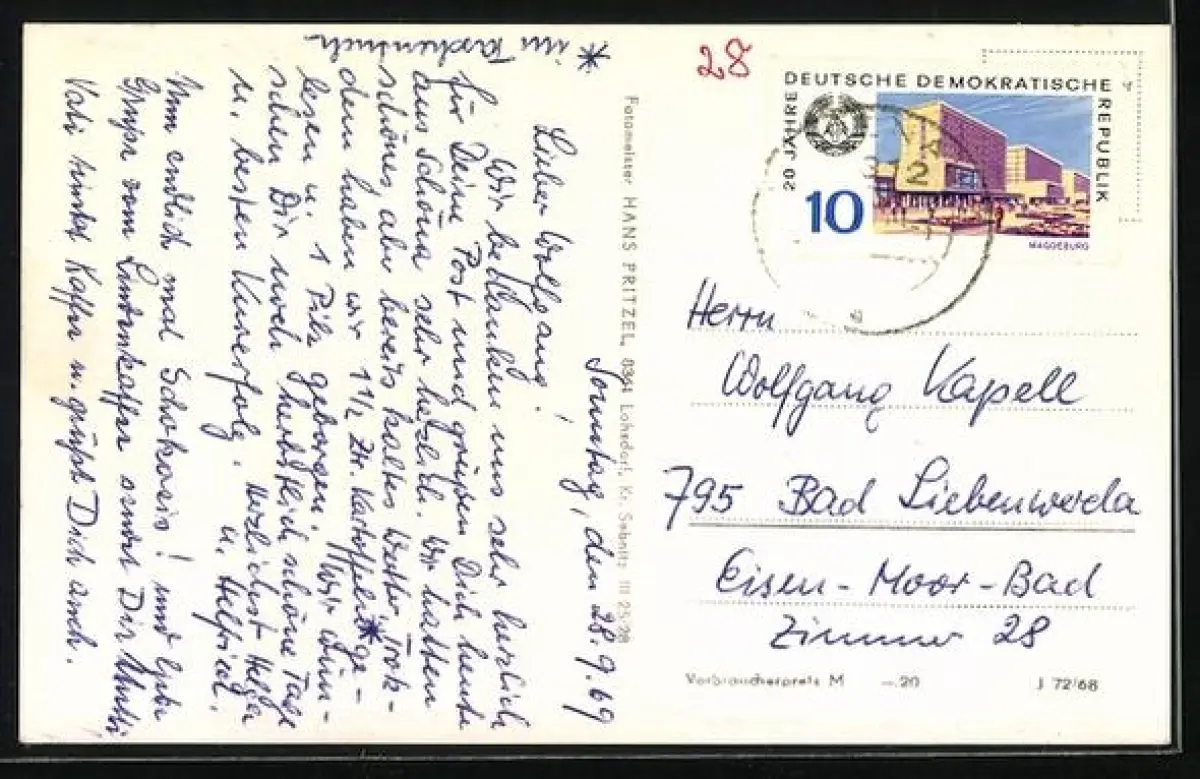 * im Taschentuch
Sonntag, den 28.9.69
Lieber Wolfgang!
Wir bedanken uns sehr herzlich
für Deine Post und grüßen Dich heute
aus Schöna sehr herzlich. Wir hatten
schönes, aber bereits kaltes Wetter, Trotz-
dem haben wir 1 1/2 Ztr. Kartoffeln * ge-
lesen u. 1 Pilz geborgen. Wir wün-
schen Dir noch herbstlich schöne Tage
u. besten Kurerfolg. Herzlichst Helga
u. Helfried.
Nun endlich mal Schokoeis! und liebe
Grüße vom Lindenkaffee sendet Dir Mutti
Vati trinkt Kaffee u. grüßt Dich auch.
Fotomeister HANS PRITZEL, 8361 Lohsdorf, Kr. Sebnitz III 23/28
28
DEUTSCHE DEMOKRATISCHE
REPUBLIK
20 JAHRE DDR
10
MAGDEBURG
Herrn
Wolfgang Kapell
795 Bad Liebenwerda
Eisen-Moor-Bad
Zimmer 28
Verbraucherpreis M -.20 J 72/68